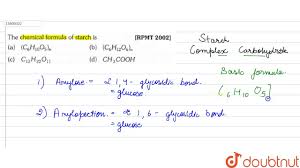 The chemical formula of starch is [RPMT 2002]
(a) (C₆H₁₀O₅)ₙ (b) (C₆H₁₂O₆)ₙ
(c) C₁₂H₂₂O₁₁ (d) CH₃COOH
Starch
Complex Carbohydrate
Basic formula
(C₆H₁₀O₅)ₙ
1) Amylose = α 1,4- glycosidic bond.
= glucose
2) Amylopection = α 1,6- glycosidic bond
= glucose.
doubtnut